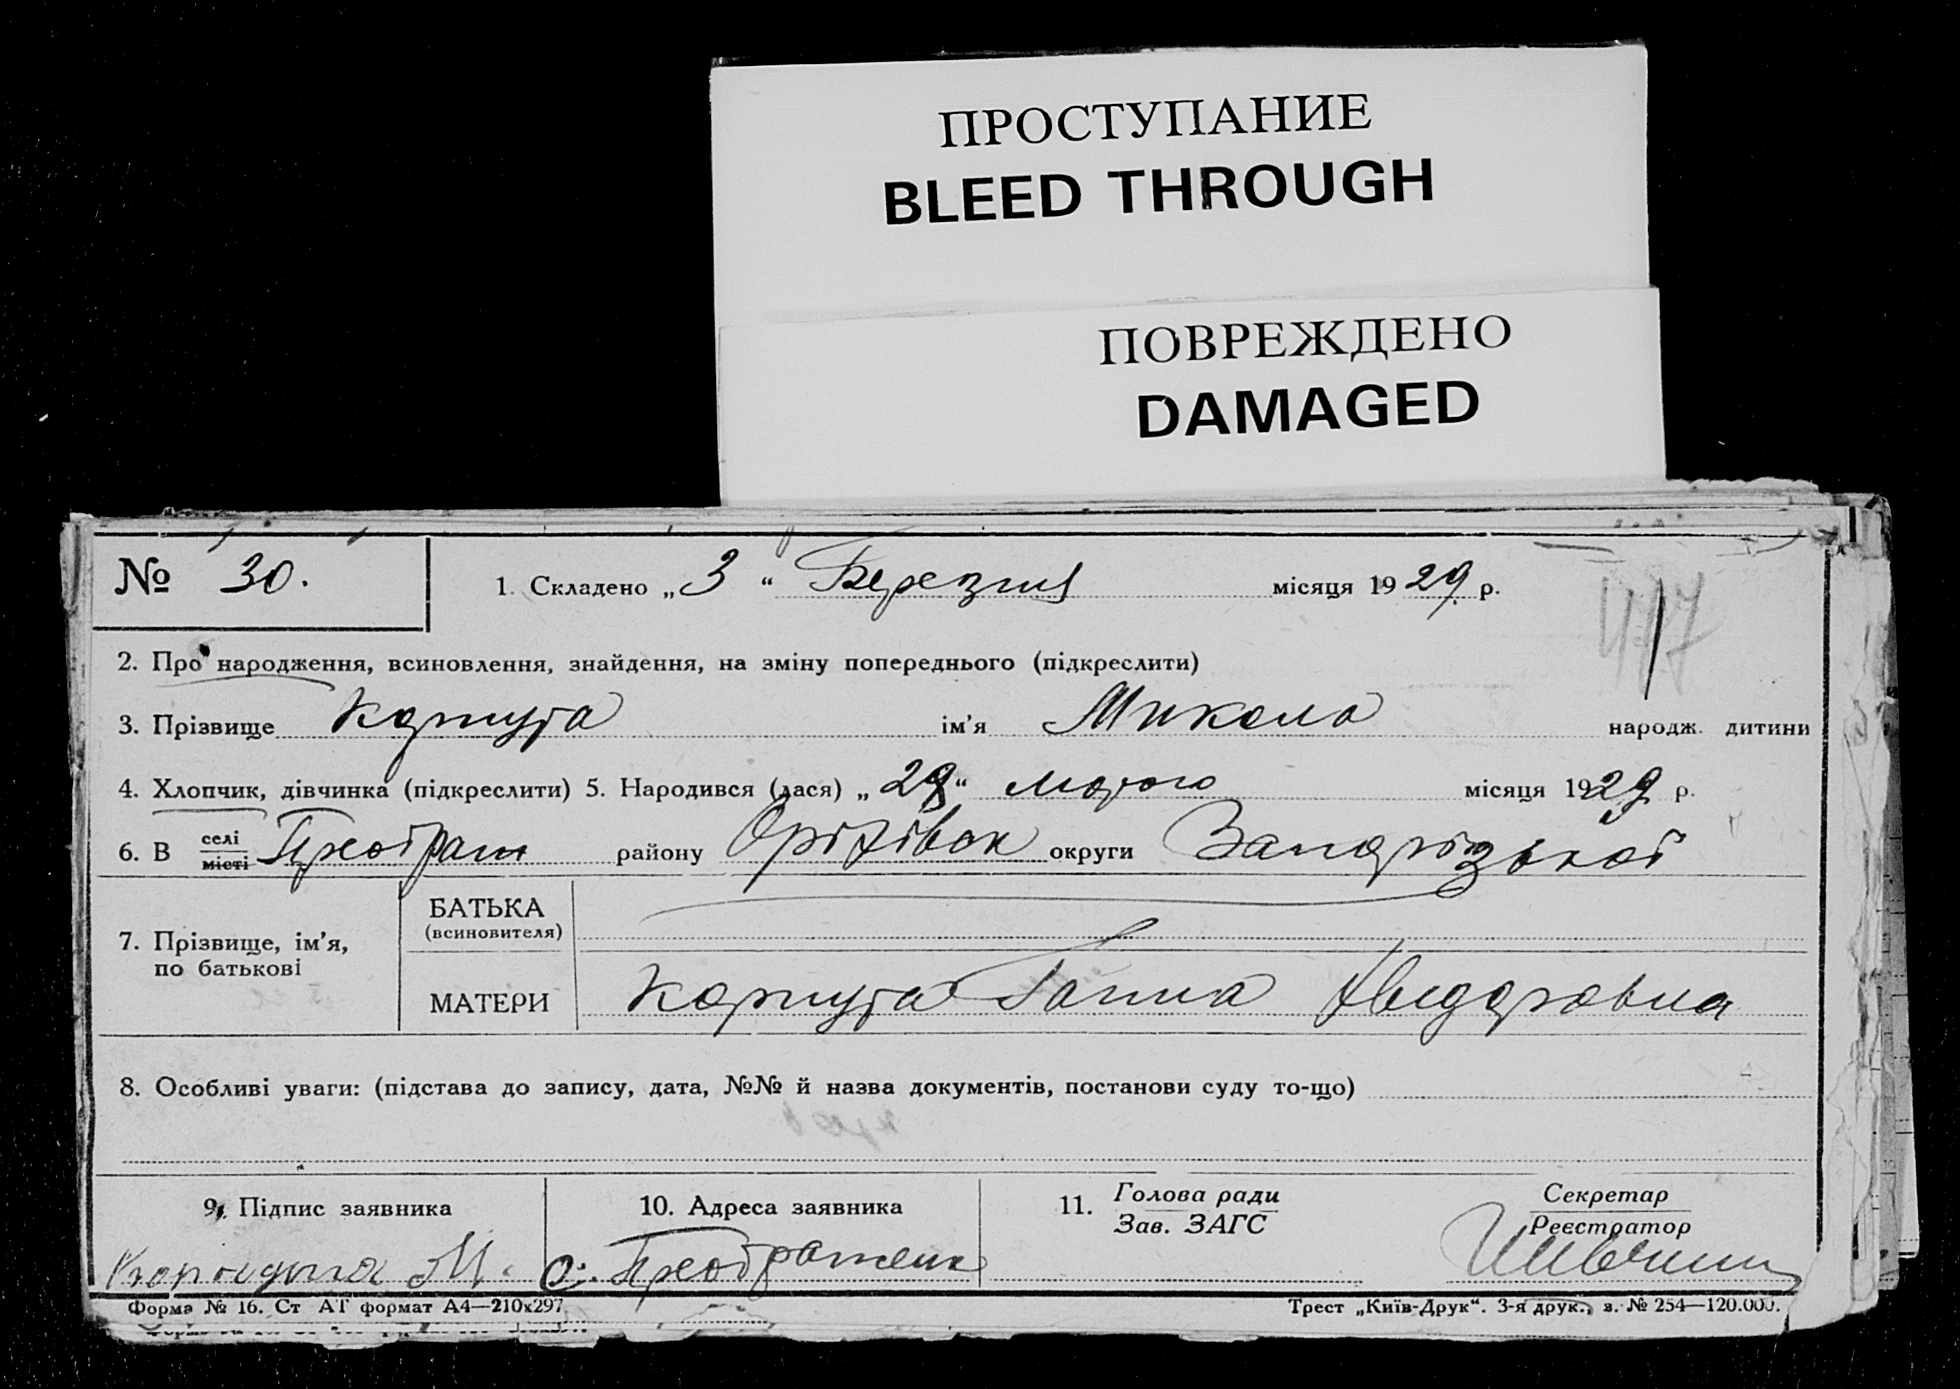 ПРОСТУПАНИЕ
BLEED THROUGH
ПОВРЕЖДЕНО
DAMAGED
№ 30.
1. Складено „3“ Березня місяця 1929 р.
477
2. Про народження, всиновлення, знайдення, на зміну попереднього (підкреслити)
3. Прізвище Корпута ім'я Микола народж. дитини
4. Хлопчик, дівчинка (підкреслити) 5. Народився (лася) „28“ лютого місяця 1929 р.
6. В селі місті Преображ району Оріхівськ округи Запорізької
7. Прізвище, ім'я, по батькові
БАТЬКА
(всиновителя)
МАТЕРИ Корпута Ганна
8. Особливі уваги: (підстава до запису, дата, №№ й назва документів, постанови суду то-що)
9. Підпис заявника
10. Адреса заявника
11. Голова ради
Зав. ЗАГС
Секретар
Реєстратор
М. с. Преображенк
Форма № 16. Ст АТ формат А4—210х297
Трест „Київ-Друк“. 3-я друк., з. № 254—120.000.